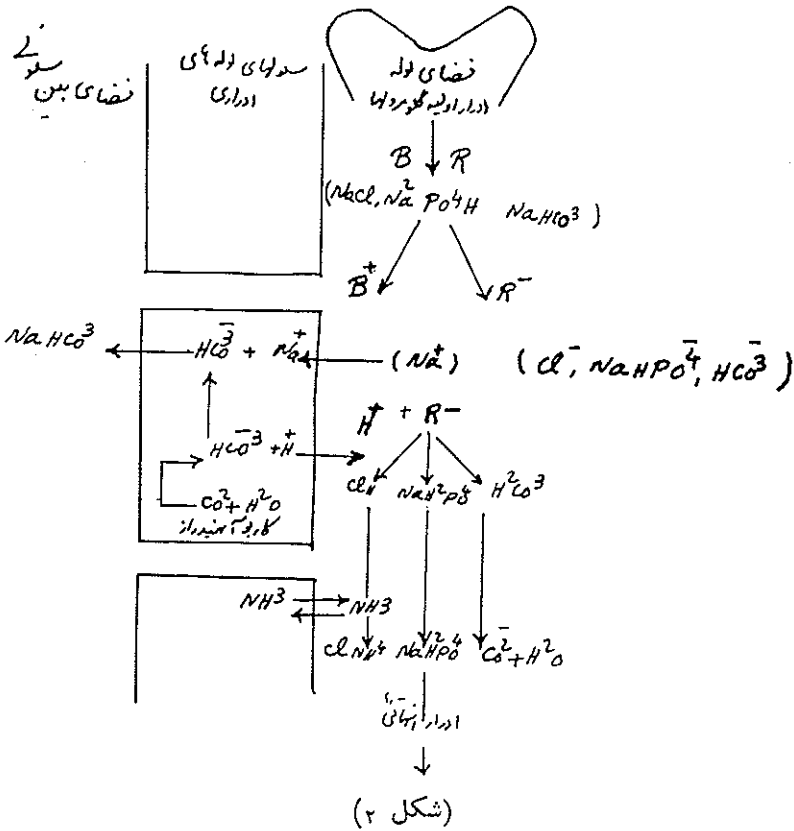 فضای بین سلولی
سلولهای لوله های
ادراری
فضای لوله
ادرار اولیه گلومرولها
B R
(NaCl, Na² PO⁴H NaHCO³)
B⁺ R⁻
NaHCO³ HCO³⁻ + Na⁺ (Na⁺) (Cl⁻, NaHPO⁴⁻, HCO³⁻)
H⁺ + R⁻
HCO³⁻ + H⁺
ClH NaH²PO⁴ H²CO³
CO² + H²O
کاربو آنیدراز
NH³ NH³
ClNH⁴ NaH²PO⁴ CO²⁻ + H²O
ادرار نهائی
(شکل ۲)